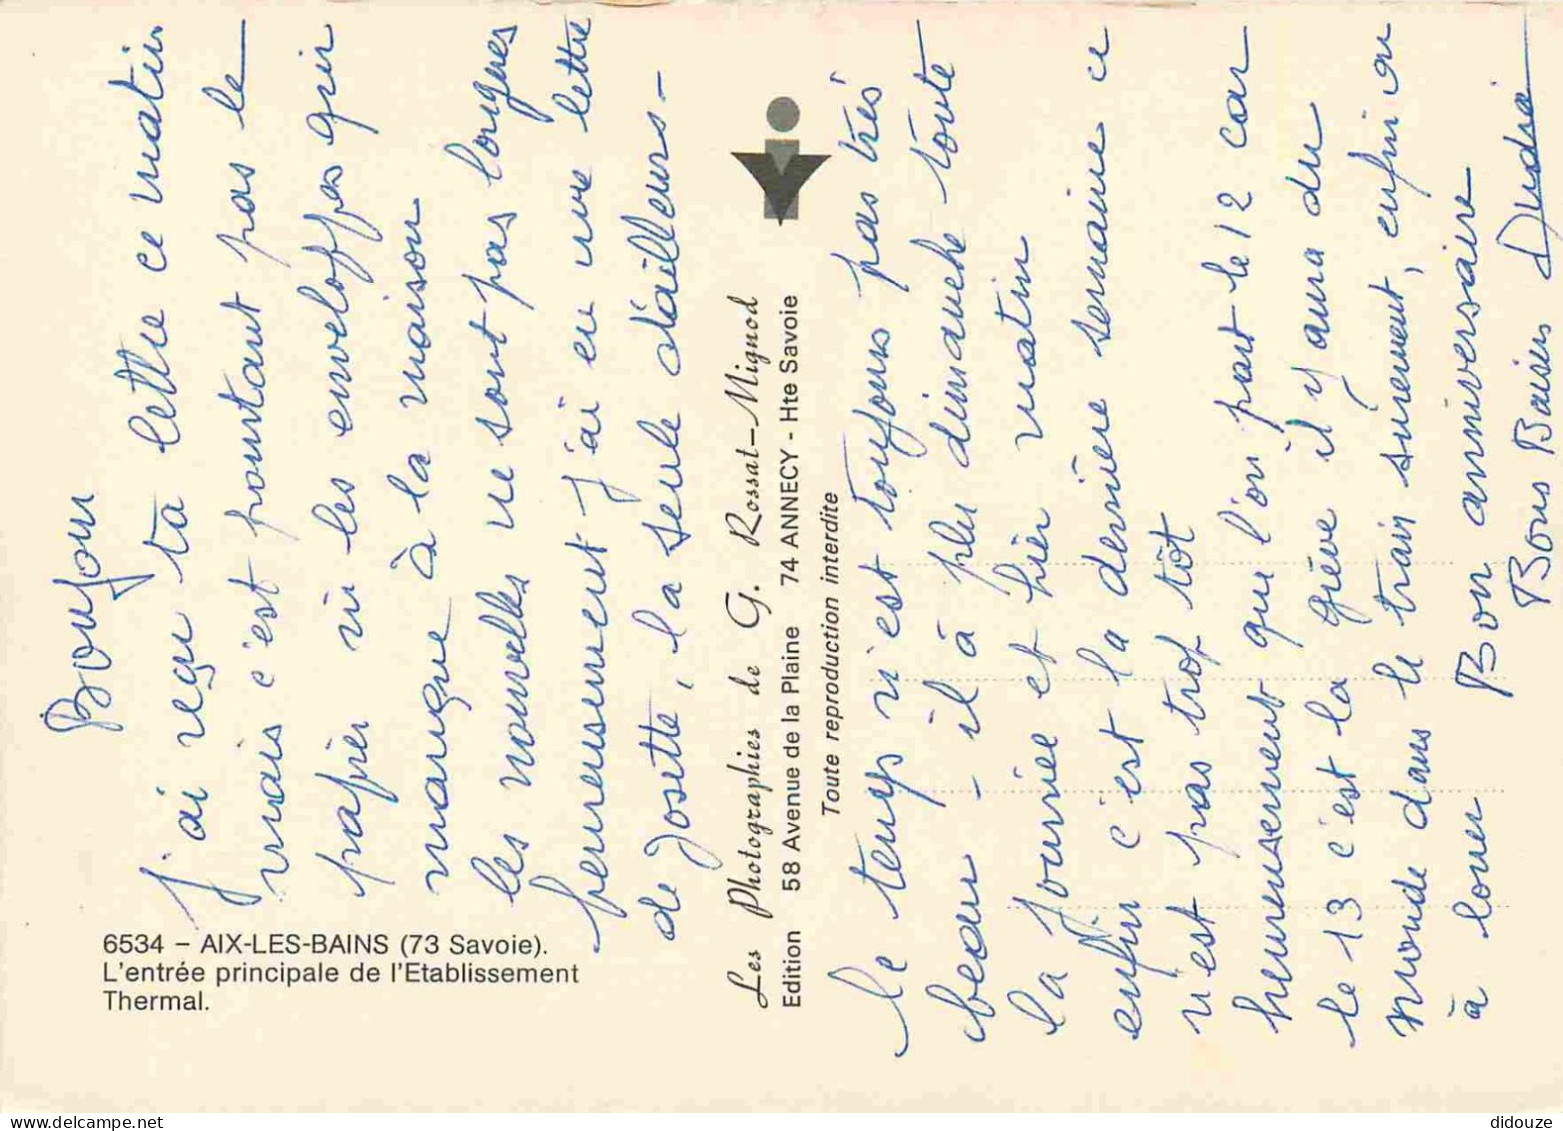 Bonjour
J'ai reçu ta lettre ce matin
mais c'est pourtant pas le
papier ni les enveloppes qui
manque à la maison
les nouvelles ne sont pas longues
heureusement j'ai eu une lettre
de Josette, la seule d'ailleurs -
6534 – AIX-LES-BAINS (73 Savoie).
L'entrée principale de l'Etablissement
Thermal.
Les Photographies de G. Rossat-Mignod
Edition 58 Avenue de la Plaine 74 ANNECY - Hte Savoie
Toute reproduction interdite
le temps n'est toujours pas très
beau - il à plu dimanche toute
la journée et hier matin
enfin c'est la dernière semaine ce
n'est pas trop tôt
heureusement que l'on part le 12 car
le 13 c'est la grève il y aura du
monde dans le train surement, enfin on
à louer Bon anniversaire
Bons Baisers Andrée
didouze